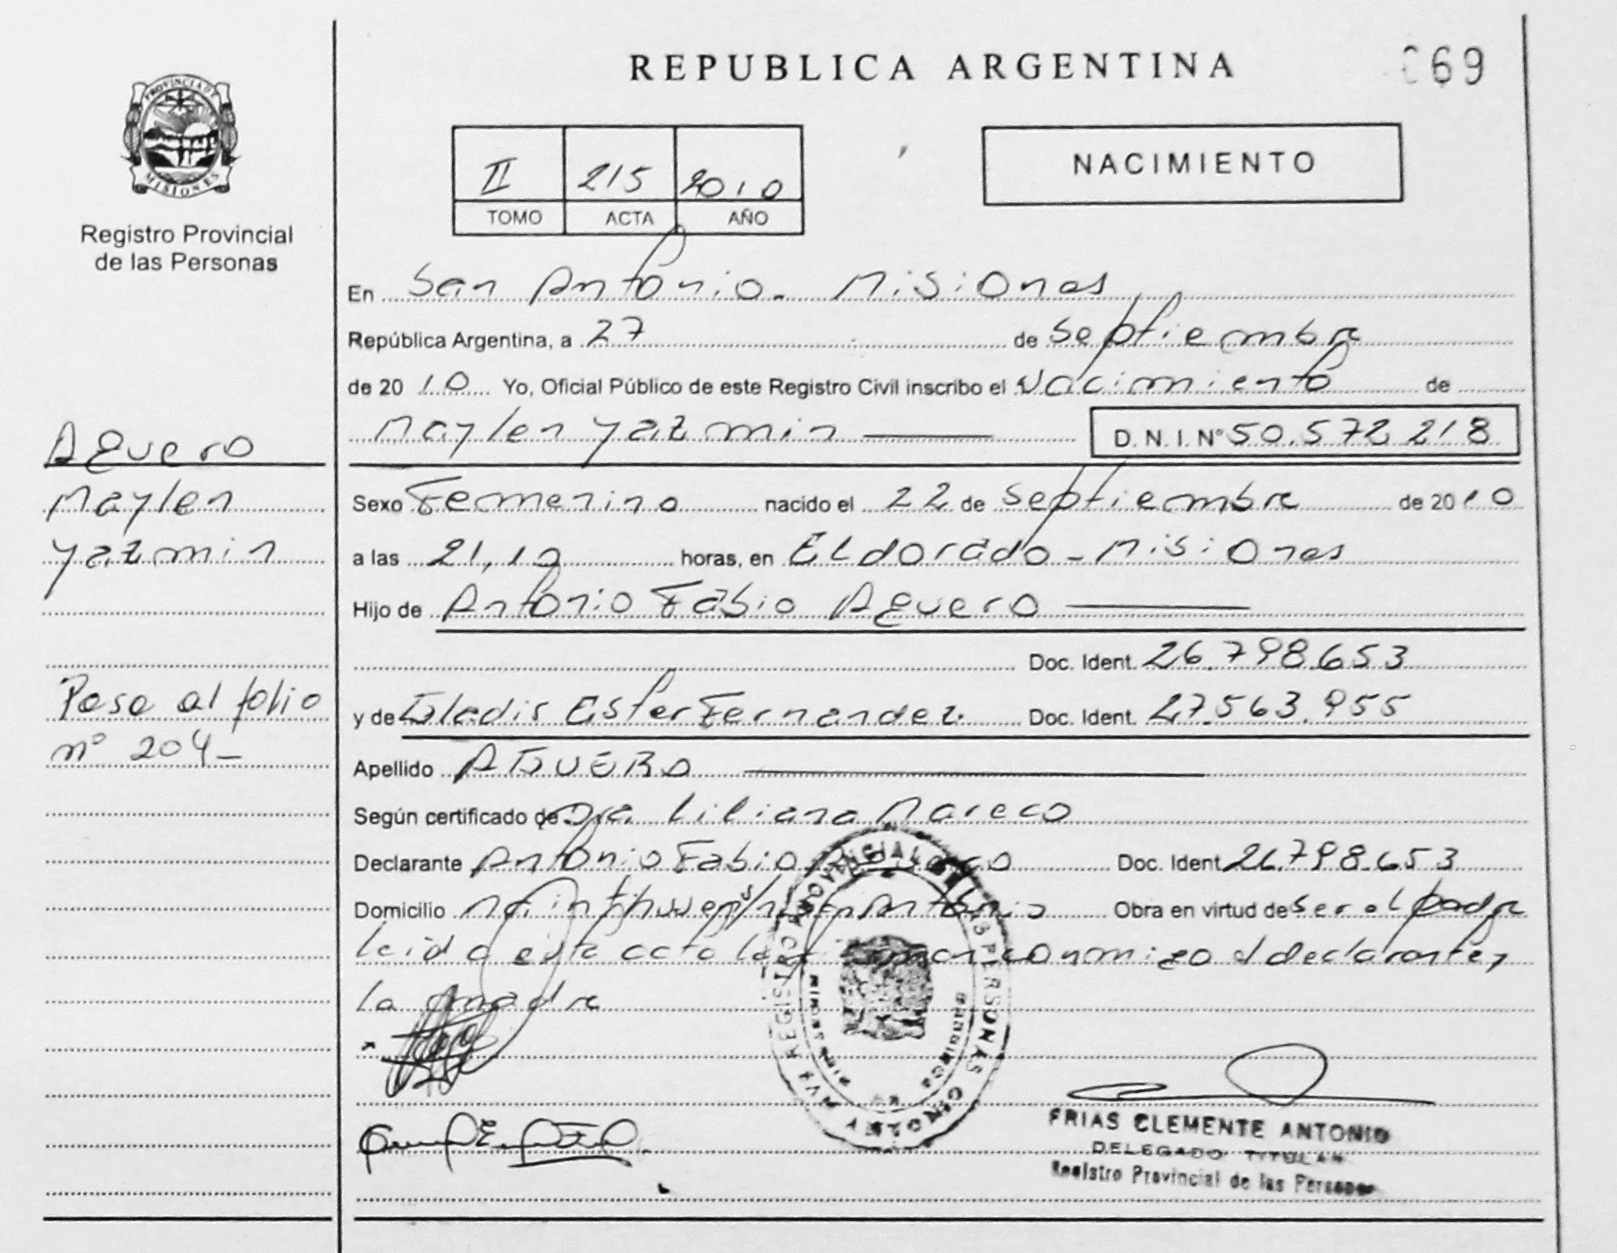 REPUBLICA ARGENTINA
69
PROVINCIA DE
MISIONES
Registro Provincial
de las Personas
II 215 2010
TOMO ACTA AÑO
NACIMIENTO
En San Antonio - Misiones
República Argentina, a 27 de Septiembre
de 2010 Yo, Oficial Público de este Registro Civil inscribo el Nacimiento de
Maylen Yazmin D.N.I. N° 50.572.218
Aguero
Maylen
Yazmin
Sexo Femenino nacido el 22 de Septiembre de 2010
a las 21,10 horas, en Eldorado - Misiones
Hijo de Antonio Fabio Aguero
Doc. Ident. 26.798.653
Pasa al folio
nº 204-
y de Gladis Ester Fernandez. Doc. Ident. 27.563.955
Apellido AGUERO
Según certificado de Dra Liliana Mareco
Declarante Antonio Fabio Doc. Ident. 26.798.653
Domicilio San Antonio Obra en virtud de ser el padre
leida esta acta la conmigo el declarante y
la madre
REGISTRO PROVINCIAL DE LAS PERSONAS
FRIAS CLEMENTE ANTONIO
DELEGADO TITULAR
Registro Provincial de las Personas